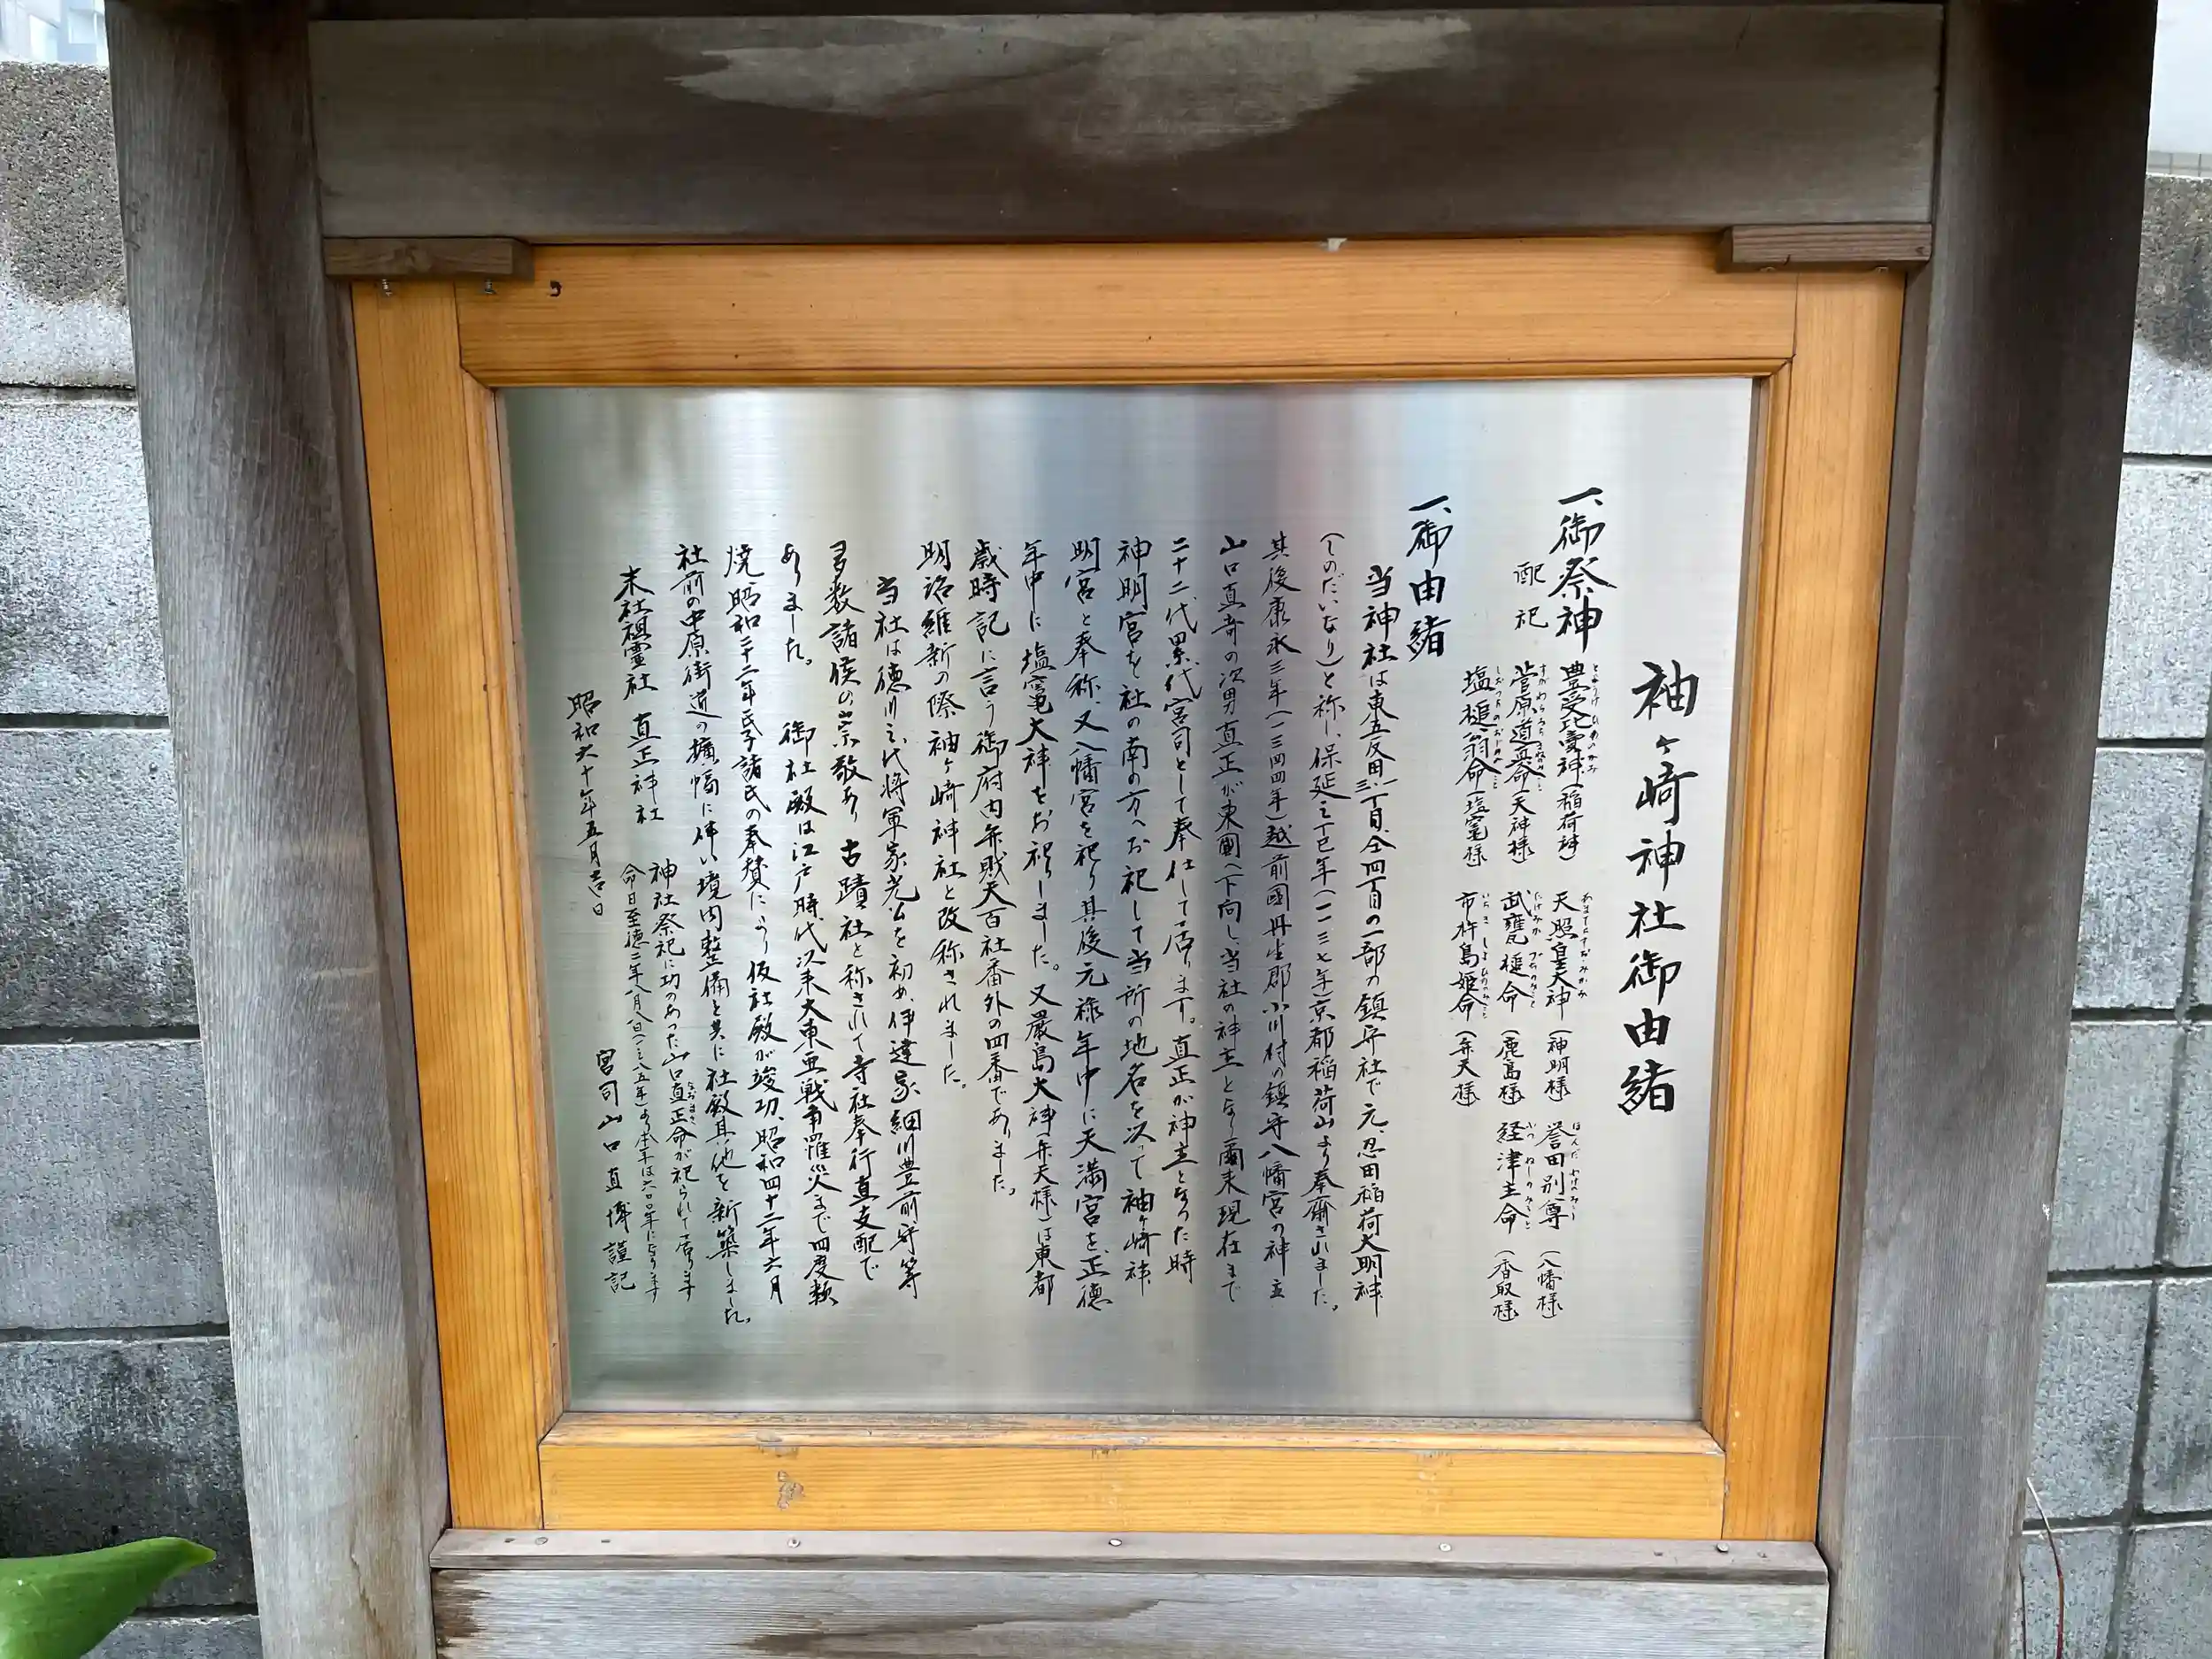 袖ヶ崎神社御由緒
一、御祭神
豊受比賣神(稲荷神)
とようけひめのかみ
天照皇大神(神明様)
あまてらすおおみかみ
誉田別尊(八幡様)
ほんだわけのみこと
配祀
菅原道眞命(天神様)
武甕槌命(鹿島様)
経津主命(香取様)
塩槌翁命(塩竃様)
市杵島姫命(弁天様)
一、御由緒
当神社は東五反田一、三丁目、全四丁目の一部の鎮守社で元、忍田稲荷大明神
(しのだいなり)と称し、保延三丁巳年(一一三七年)京都稲荷山より奉齋されました。
其後康永三年(一三四四年)越前國丹生郡小川村の鎮守八幡宮の神主
山口直斉の次男直正が東國へ下向し、当社の神主となり爾来現在まで
二十二代累代宮司として奉仕して居ります。直正が神主となった時
神明宮を社の南の方へお祀して当所の地名を以って袖ヶ崎神
明宮と奉称、又八幡宮を祀り其後元禄年中に天満宮を、正徳
年中に塩竃大神をお祀りしました。又厳島大神(弁天様)は東都
歳時記に言う御府内弁財天百社番外の四番でありました。
明治維新の際袖ヶ崎神社と改称されました。
当社は徳川三代将軍家光公を初め、伊達家、細川豊前守等
多数諸侯の崇敬あり古蹟社と称されて寺社奉行直支配で
ありました。御社殿は江戸時代以来大東亜戦争罹災まで四度類
焼昭和二十二年氏子諸氏の奉賛により仮社殿が竣功、昭和四十二年六月
社前の中原街道の擴幅に伴い境内整備と共に社殿其他を新築しました。
末社祖霊社 直正神社
神社祭祀に功のあった山口直正命が祀られて居ります
命日至徳二年八月八日(一三八五年)より本年は六〇〇年になります
昭和六十年五月吉日
宮司 山口直博 謹記